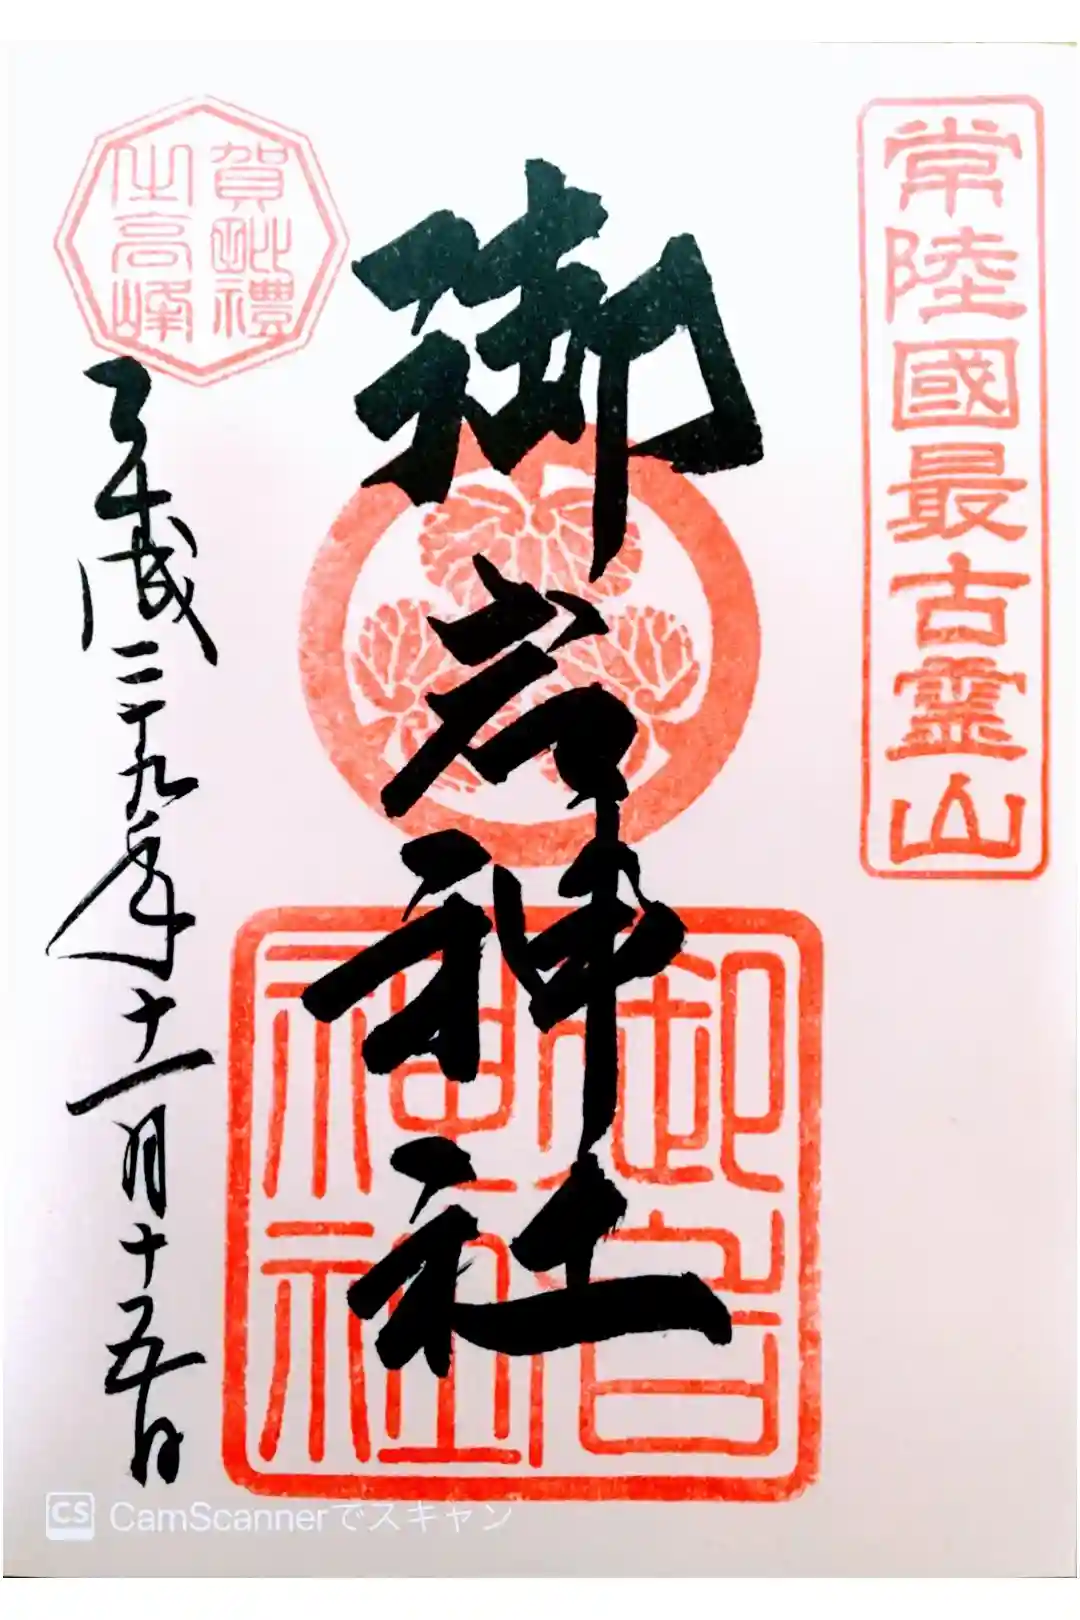 常陸國最古霊山
御岩神社
御岩
神社
賀毗禮
之高峰
平成二十九年十一月十五日
CS CamScannerでスキャン